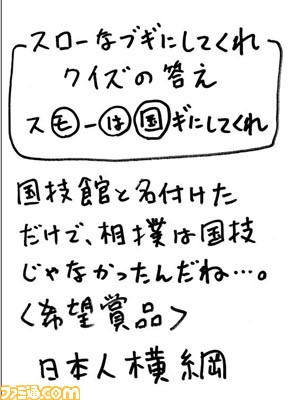 スローなブギにしてくれ
クイズの答え
スモーは国ギにしてくれ
国技館と名付けた
だけで、相撲は国技
じゃなかったんだね…。
<希望賞品>
日本人横綱
ファミ通.com